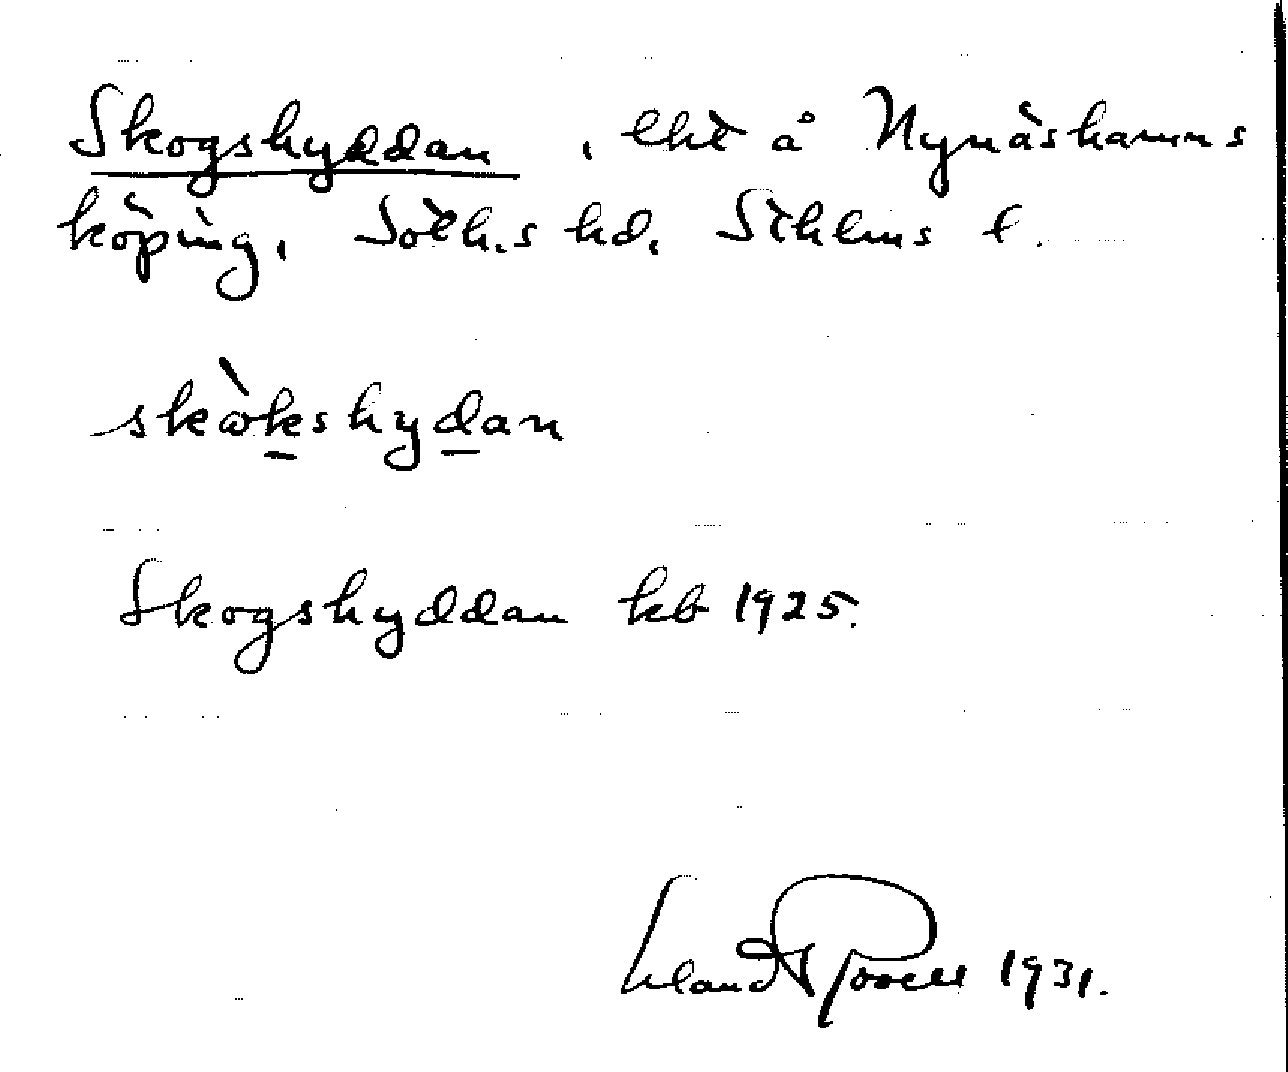 Skogshyddan, lht å Nynäshamns
köping, Soth.s hd. Sthlms l.
skòkshydan
Skogshyddan kb 1925.
1931.